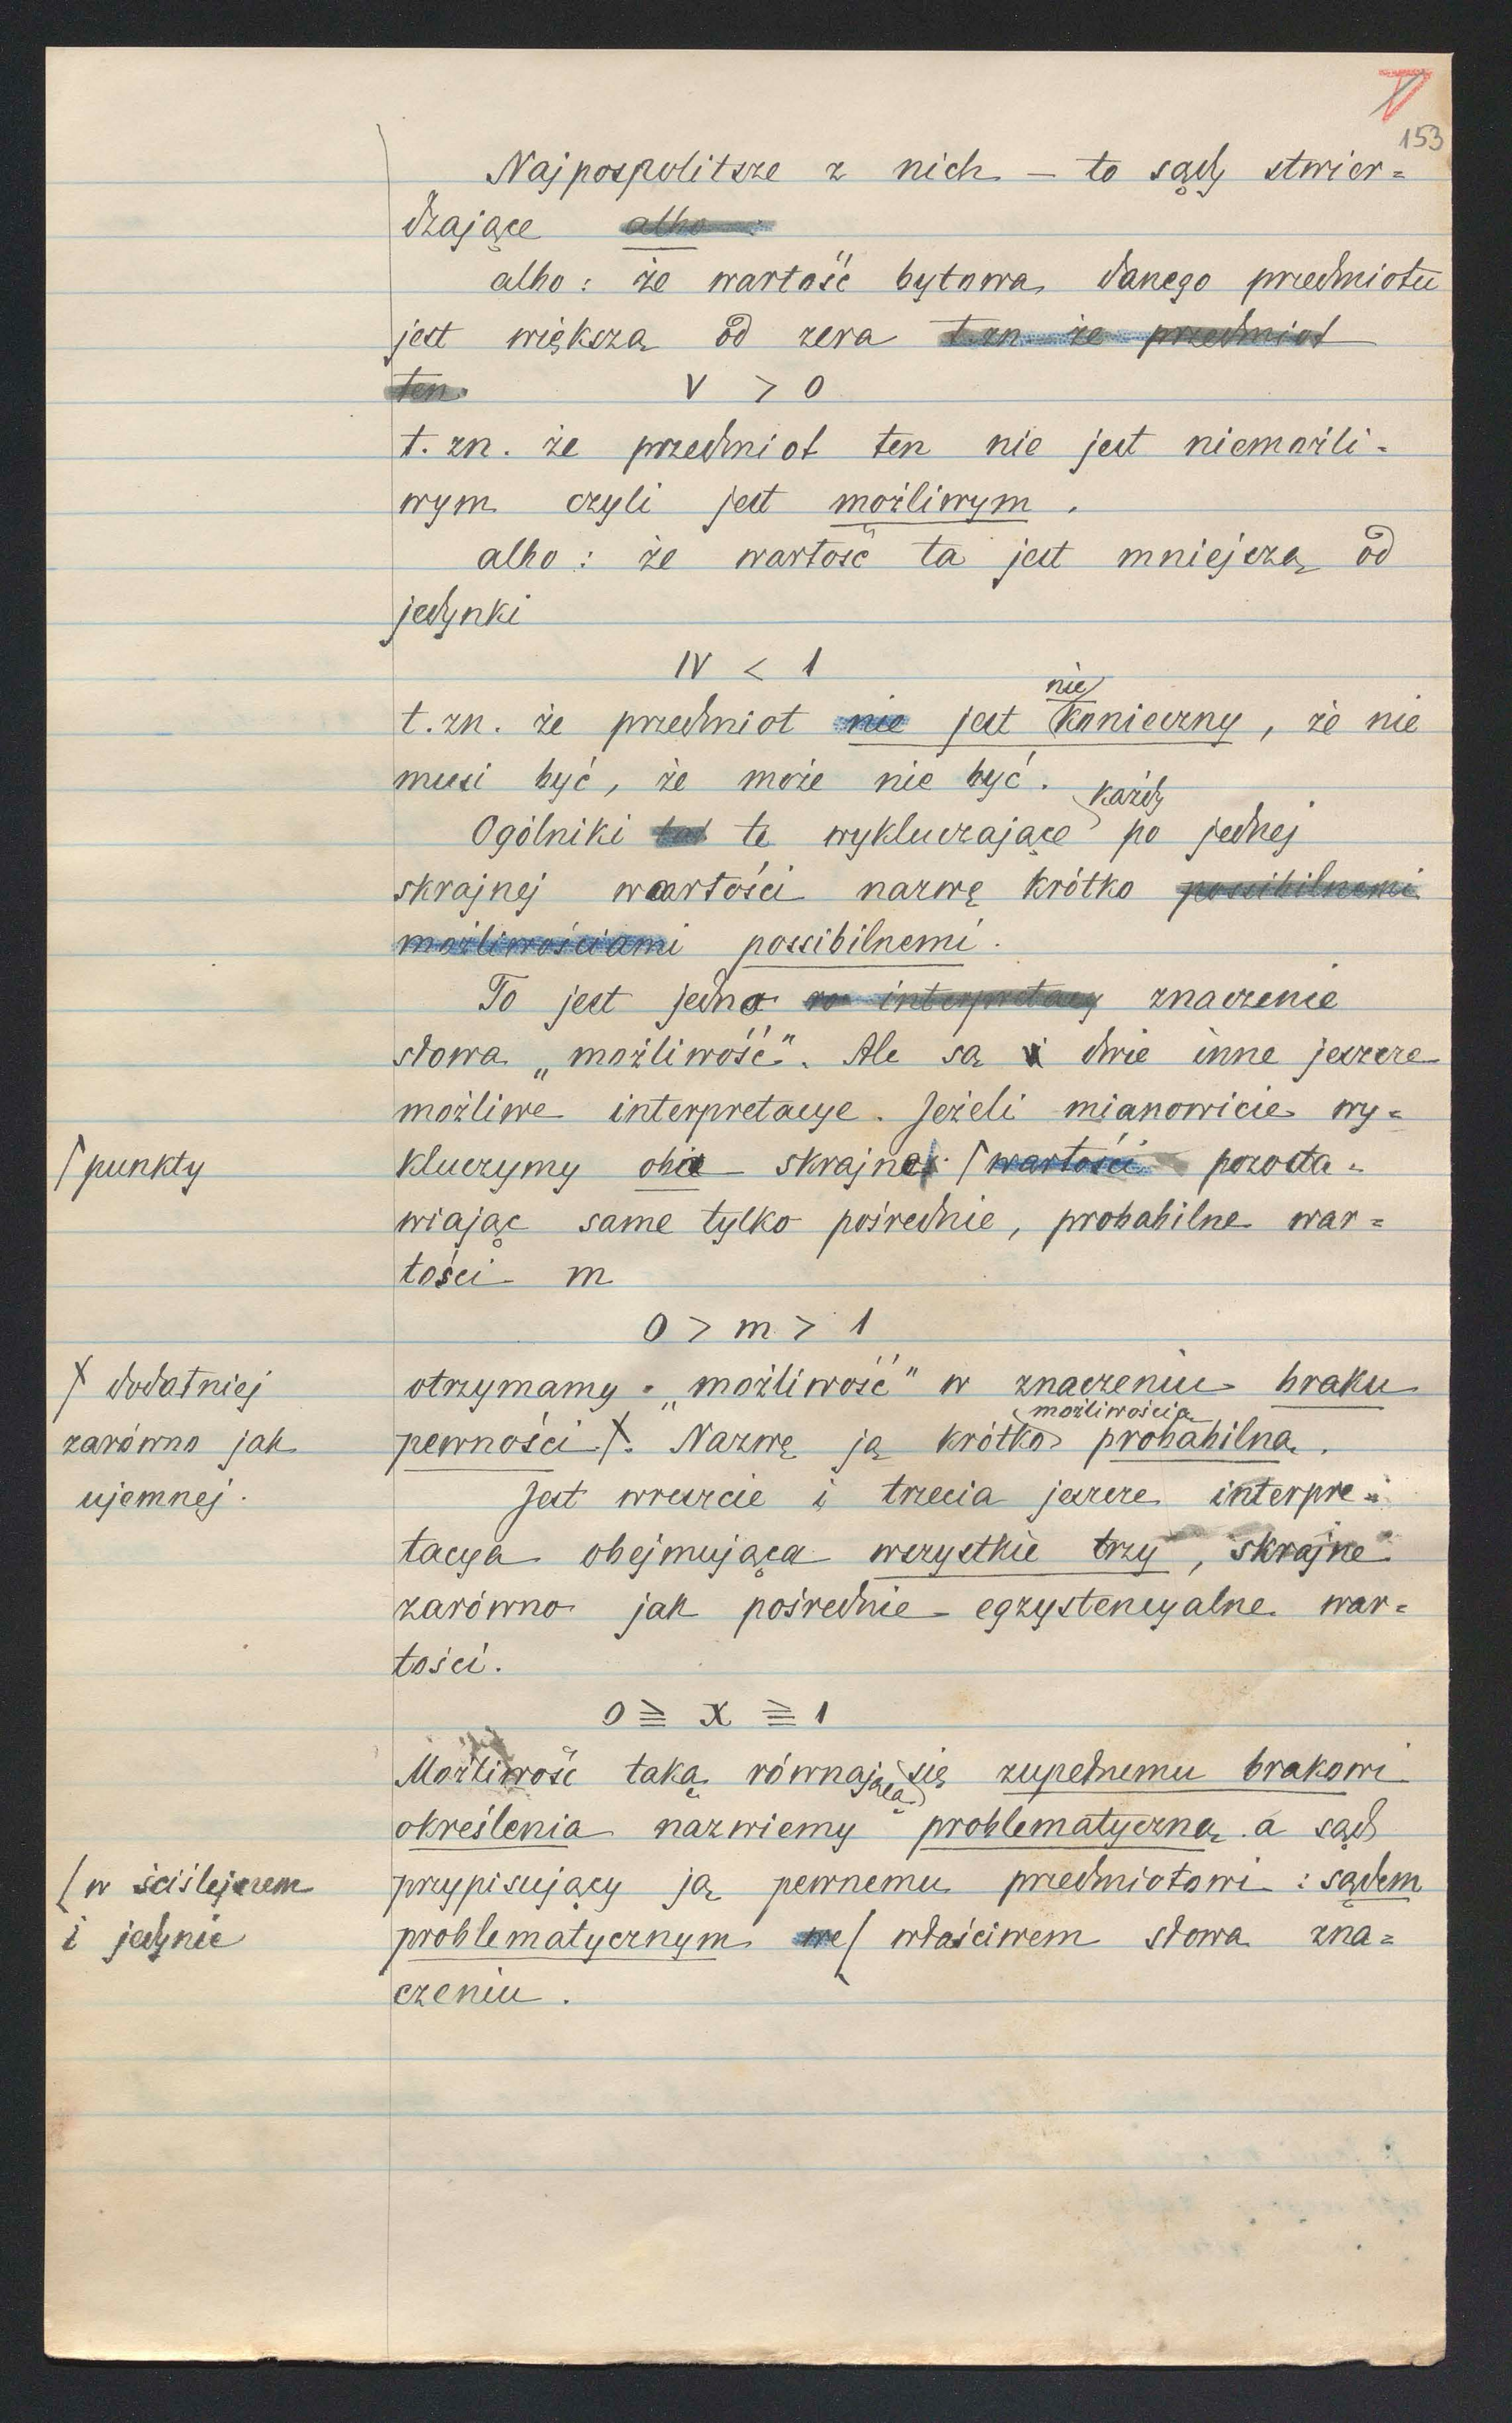 V
153
Najpospolitsze z nich – to sądy stwier=
dzające albo :
albo : że wartość bytowa danego przedmiotu
jest większa od zera t.zn że przedmiot
ten V > 0
t. zn. że przedmiot ten nie jest niemożli=
wym czyli jest możliwym .
albo : że wartość ta jest mniejsza od
jedynki
IV < 1
nie
t. zn. że przedmiot nie jest konieczny, że nie
musi być, że może nie być.
każdy
Ogólniki te wykluczające po jednej
skrajnej wartości nazwę krótko possibilnemi
możliwościami possibilnemi.
To jest jedno interpretacy znaczenie
słowa „możliwość". Ale są i dwie inne jeszcze
możliwe interpretacye. Jeżeli mianowicie wy=
⌈ punkty
kluczymy oba skrajne ⌈ wartości pozosta=
wiając same tylko pośrednie, probabilne war=
tości m
0 > m > 1
X dodatniej
otrzymamy „możliwość" w znaczeniu braku
możliwością
zarówno jak
pewności X. Nazwę ją krótko probabilną.
ujemnej.
Jest wreszcie i trzecia jeszcze interpre=
tacya obejmująca wszystkie trzy, skrajne
zarówno jak pośrednie egzystencyalne war=
tości.
0 ≧ X ≧ 1
Możliwość taką równającą się zupełnemu brakowi
określenia nazwiemy problematyczną a sąd
⌊ w ściślejszem
przypisujący ją pewnemu przedmiotowi : sądem
i jedynie
problematycznym we ⌊ właściwem słowa zna=
czeniu .